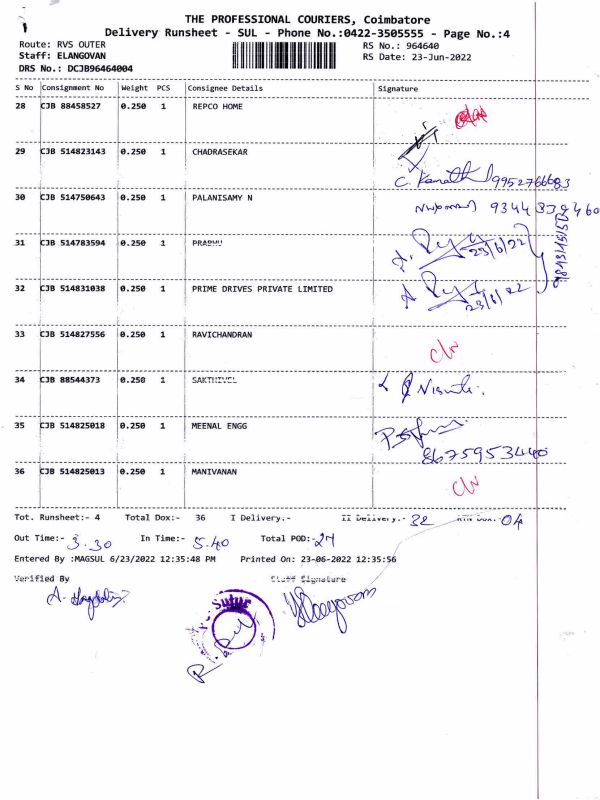 THE PROFESSIONAL COURIERS, Coimbatore
Delivery Runsheet - SUL - Phone No.:0422-3505555 - Page No.:4
Route: RVS OUTER RS No.: 964640
Staff: ELANGOVAN RS Date: 23-Jun-2022
DRS No.: DCJB96464004
S No Consignment No Weight PCS Consignee Details Signature
28 CJB 88458527 0.250 1 REPCO HOME
29 CJB 514823143 0.250 1 CHADRASEKAR
9952766683
30 CJB 514750643 0.250 1 PALANISAMY N
31 CJB 514783594 0.250 1 PRABHU
23/6/22
32 CJB 514831038 0.250 1 PRIME DRIVES PRIVATE LIMITED
23/6/22
33 CJB 514827556 0.250 1 RAVICHANDRAN
34 CJB 88544373 0.250 1 SAKTHIVEL
35 CJB 514825018 0.250 1 MEENAL ENGG
8675953440
36 CJB 514825013 0.250 1 MANIVANAN
Tot. Runsheet:- 4 Total Dox:- 36 I Delivery.- II Delivery.- 32 RTN Dox.- 04
Out Time:- 3.30 In Time:- 5.40 Total POD:- 27
Entered By :MAGSUL 6/23/2022 12:35:48 PM Printed On: 23-06-2022 12:35:56
Verified By Staff Signature
Sulur